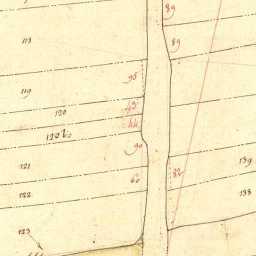 89
113
89
95
119
43
120
44
120 b
90
121
139
82
60
122
138
123